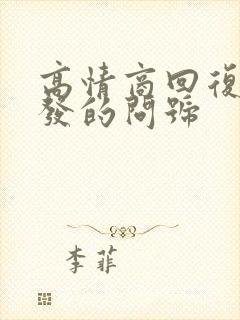 高情商回復
發的問號
李菲